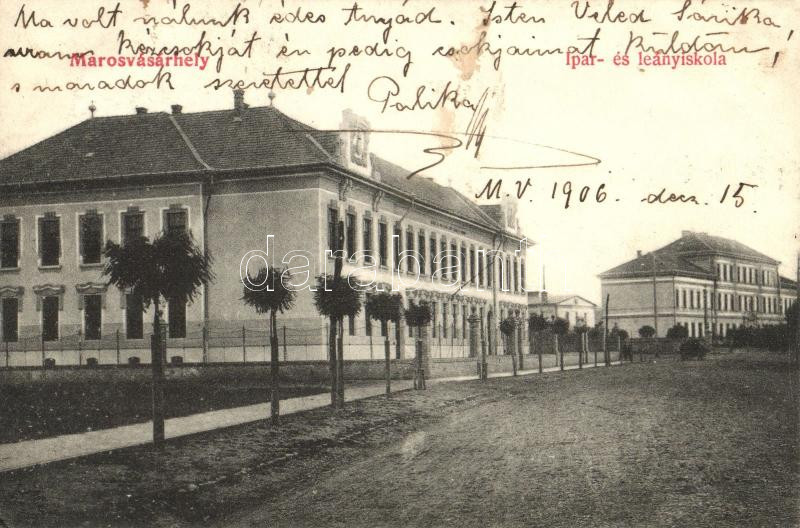 Ma volt nálunk édes Anyád. Isten Veled Sárika
kézcsokját én pedig csokjaimat küldöm,
Marosvásárhely
Ipar- és leányiskola
s maradok szeretettel Palika
M.V. 1906. decz. 15
darabanth